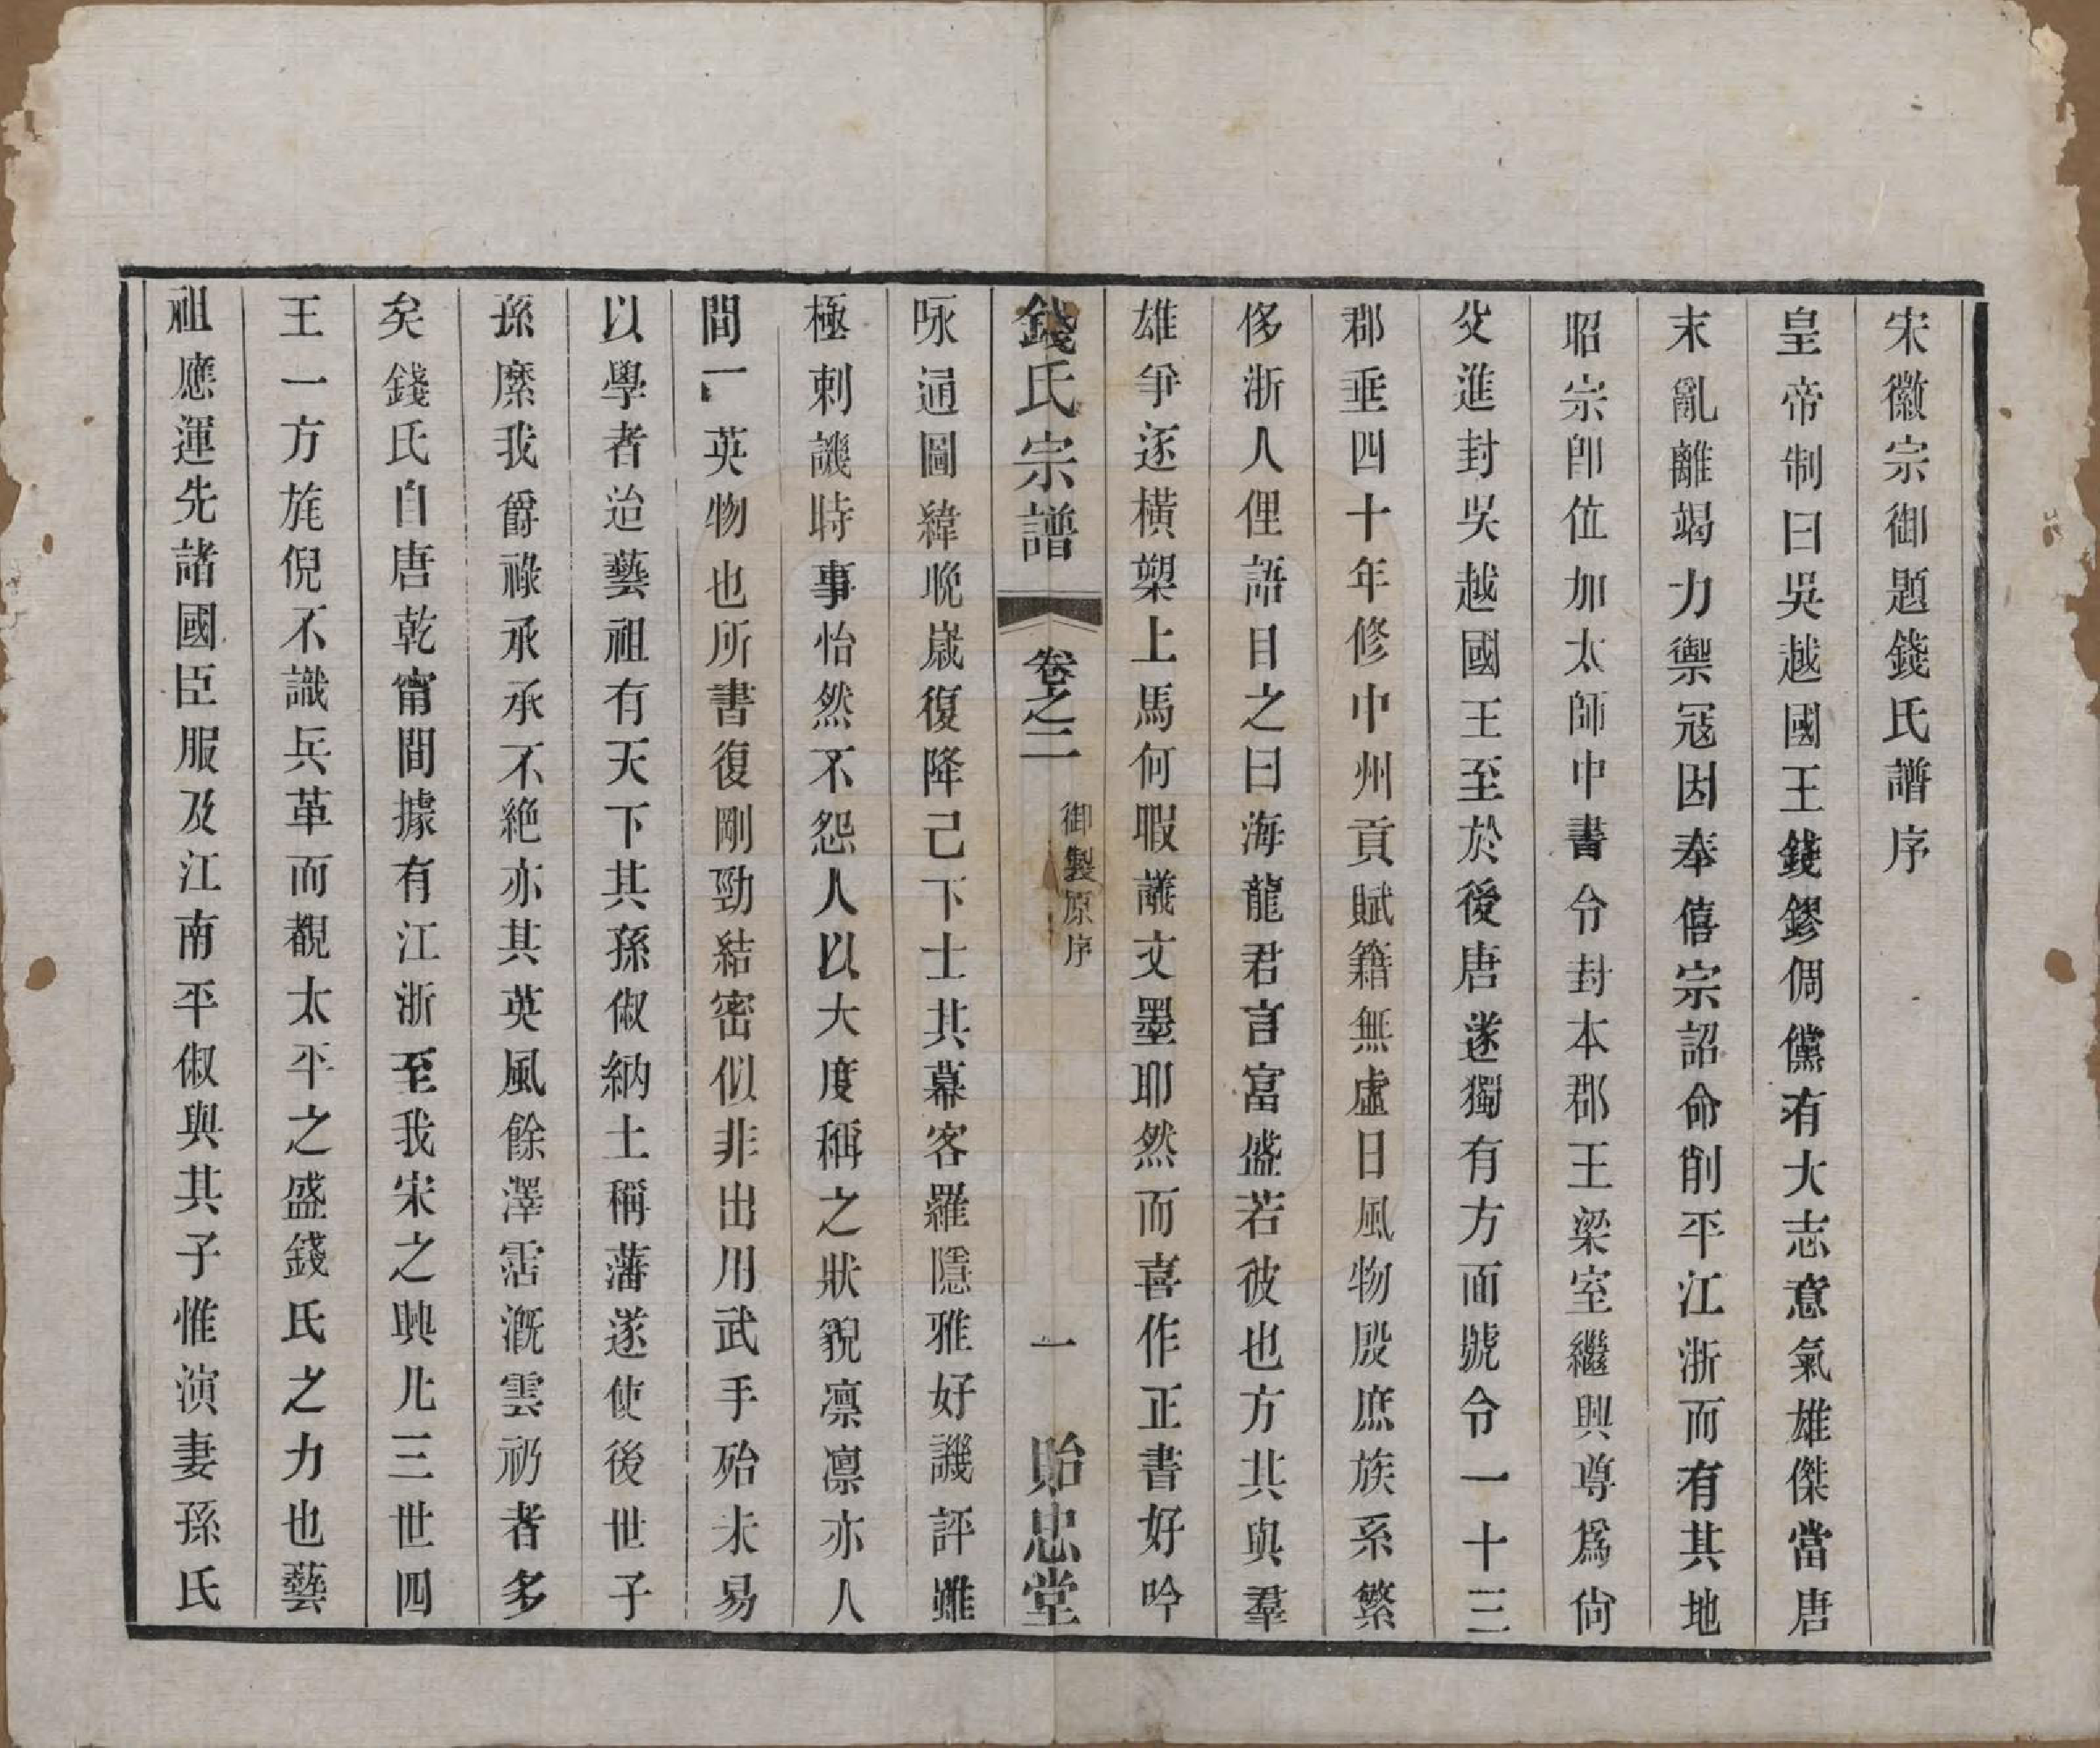 宋徽宗御題錢氏譜序
皇帝制曰吳越國王錢鏐倜儻有大志意氣雄傑當唐
末亂離竭力禦寇因奉僖宗詔命削平江浙而有其地
昭宗卽位加太師中書令封本郡王梁室繼興尊爲尙
父進封吳越國王至於後唐遂獨有方面號令一十三
郡垂四十年修中州貢賦籍無虛日風物殷庶族系繁
侈浙人俚語目之曰海龍君言富盛若彼也方其與羣
雄爭逐橫槊上馬何暇議文墨耶然而喜作正書好吟
咏通圖緯晚歲復降己下士其幕客羅隱雅好譏評雖
極刺譏時事怡然不怨人以大度稱之狀貌凛凛亦人
間一英物也所書復剛勁結密似非出用武手殆未易
以學者治藝祖有天下其孫俶納土稱藩遂使後世子
孫縻我爵祿承承不絶亦其英風餘澤霑漑雲礽者多
矣錢氏自唐乾甯間據有江浙至我宋之興凡三世四
王一方旄倪不識兵革而覩太平之盛錢氏之力也藝
祖應運先諸國臣服及江南平俶與其子惟演妻孫氏
錢氏宗譜 卷之二 御製原序 一 貽忠堂